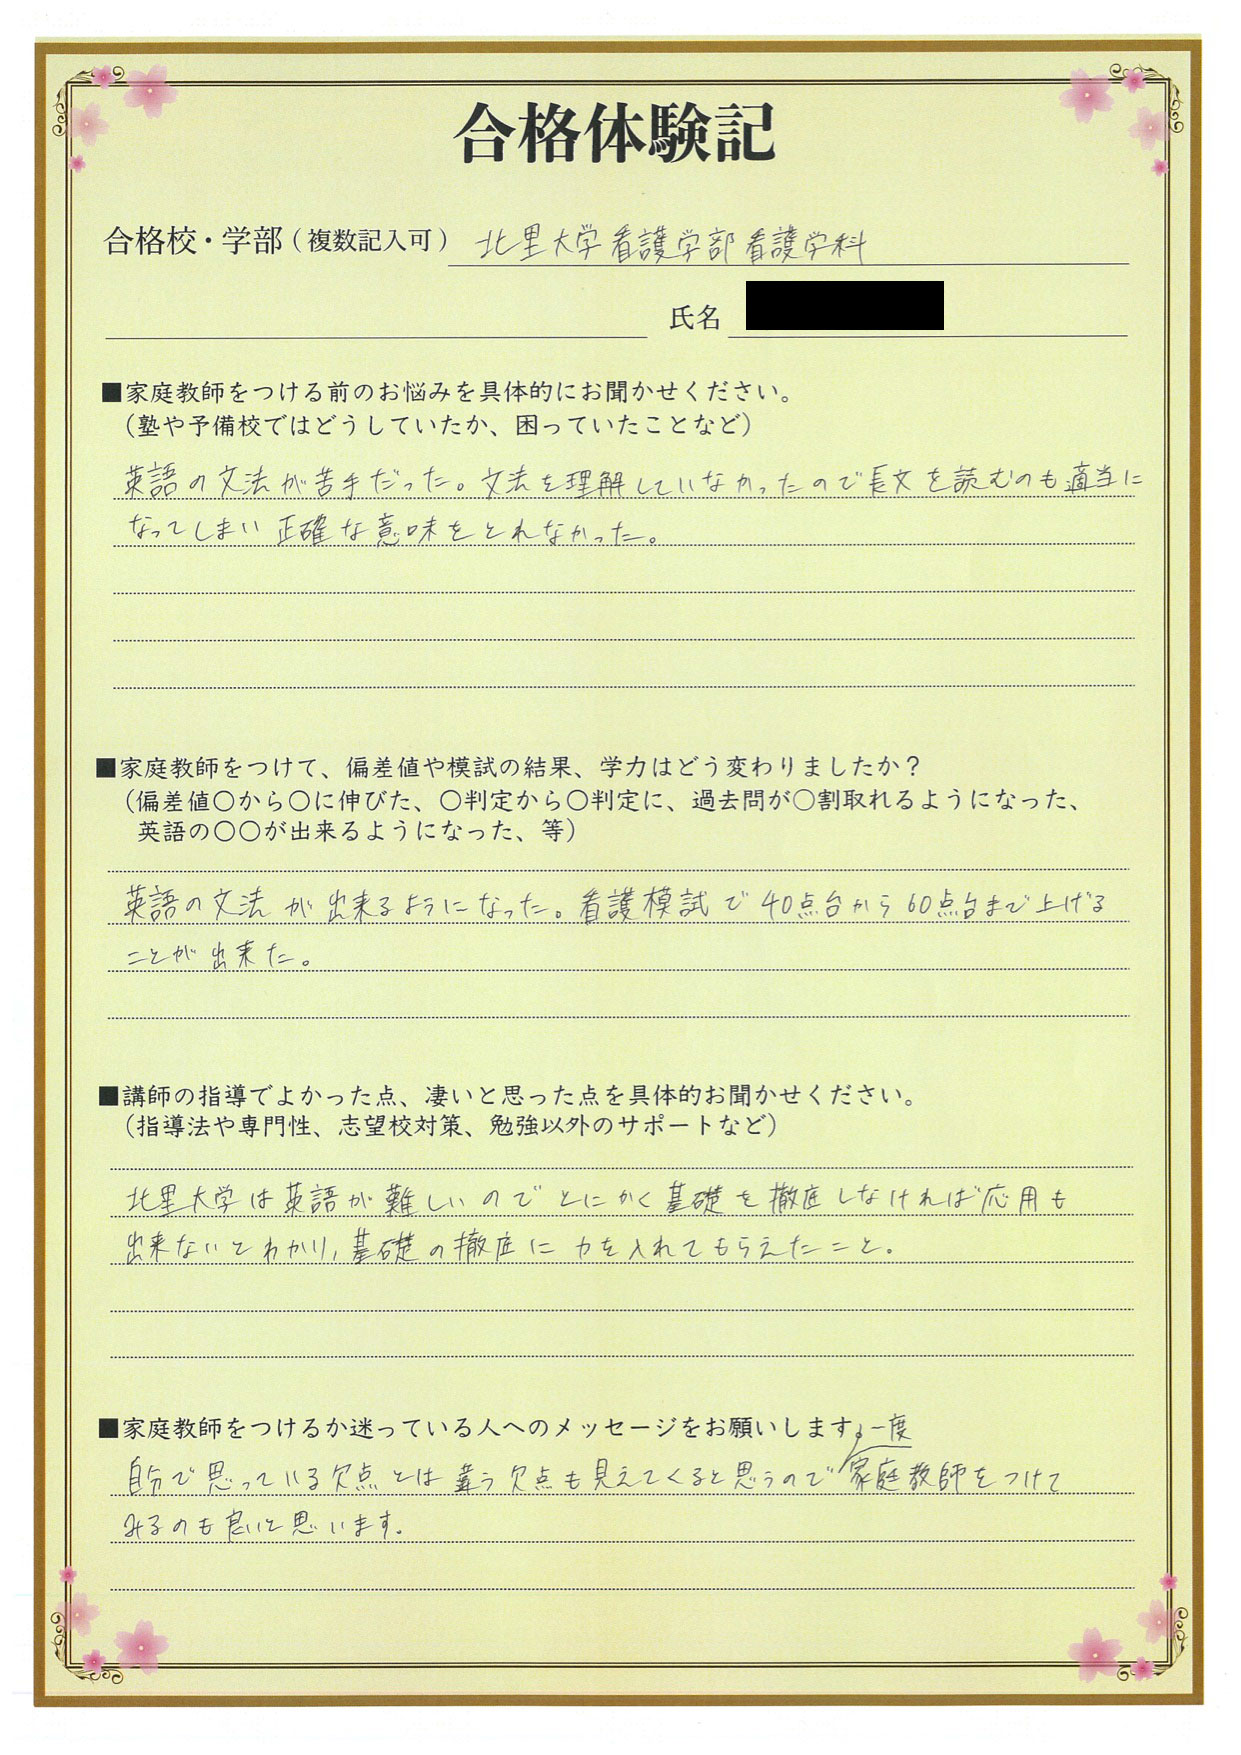 合格体験記
合格校・学部（複数記入可） 北里大学看護学部看護学科
氏名
■家庭教師をつける前のお悩みを具体的にお聞かせください。
（塾や予備校ではどうしていたか、困っていたことなど）
英語の文法が苦手だった。文法を理解していなかったので長文を読むのも適当に
なってしまい正確な意味をとれなかった。
■家庭教師をつけて、偏差値や模試の結果、学力はどう変わりましたか？
（偏差値〇から〇に伸びた、〇判定から〇判定に、過去問が〇割取れるようになった、
英語の〇〇が出来るようになった、等）
英語の文法が出来るようになった。看護模試で40点台から60点台まで上げる
ことが出来た。
■講師の指導でよかった点、凄いと思った点を具体的お聞かせください。
（指導法や専門性、志望校対策、勉強以外のサポートなど）
北里大学は英語が難しいのでとにかく基礎を徹底しなければ応用も
出来ないとわかり、基礎の徹底に力を入れてもらえたこと。
■家庭教師をつけるか迷っている人へのメッセージをお願いします。
自分で思っている欠点とは違う欠点も見えてくると思うので一度家庭教師をつけて
みるのも良いと思います。